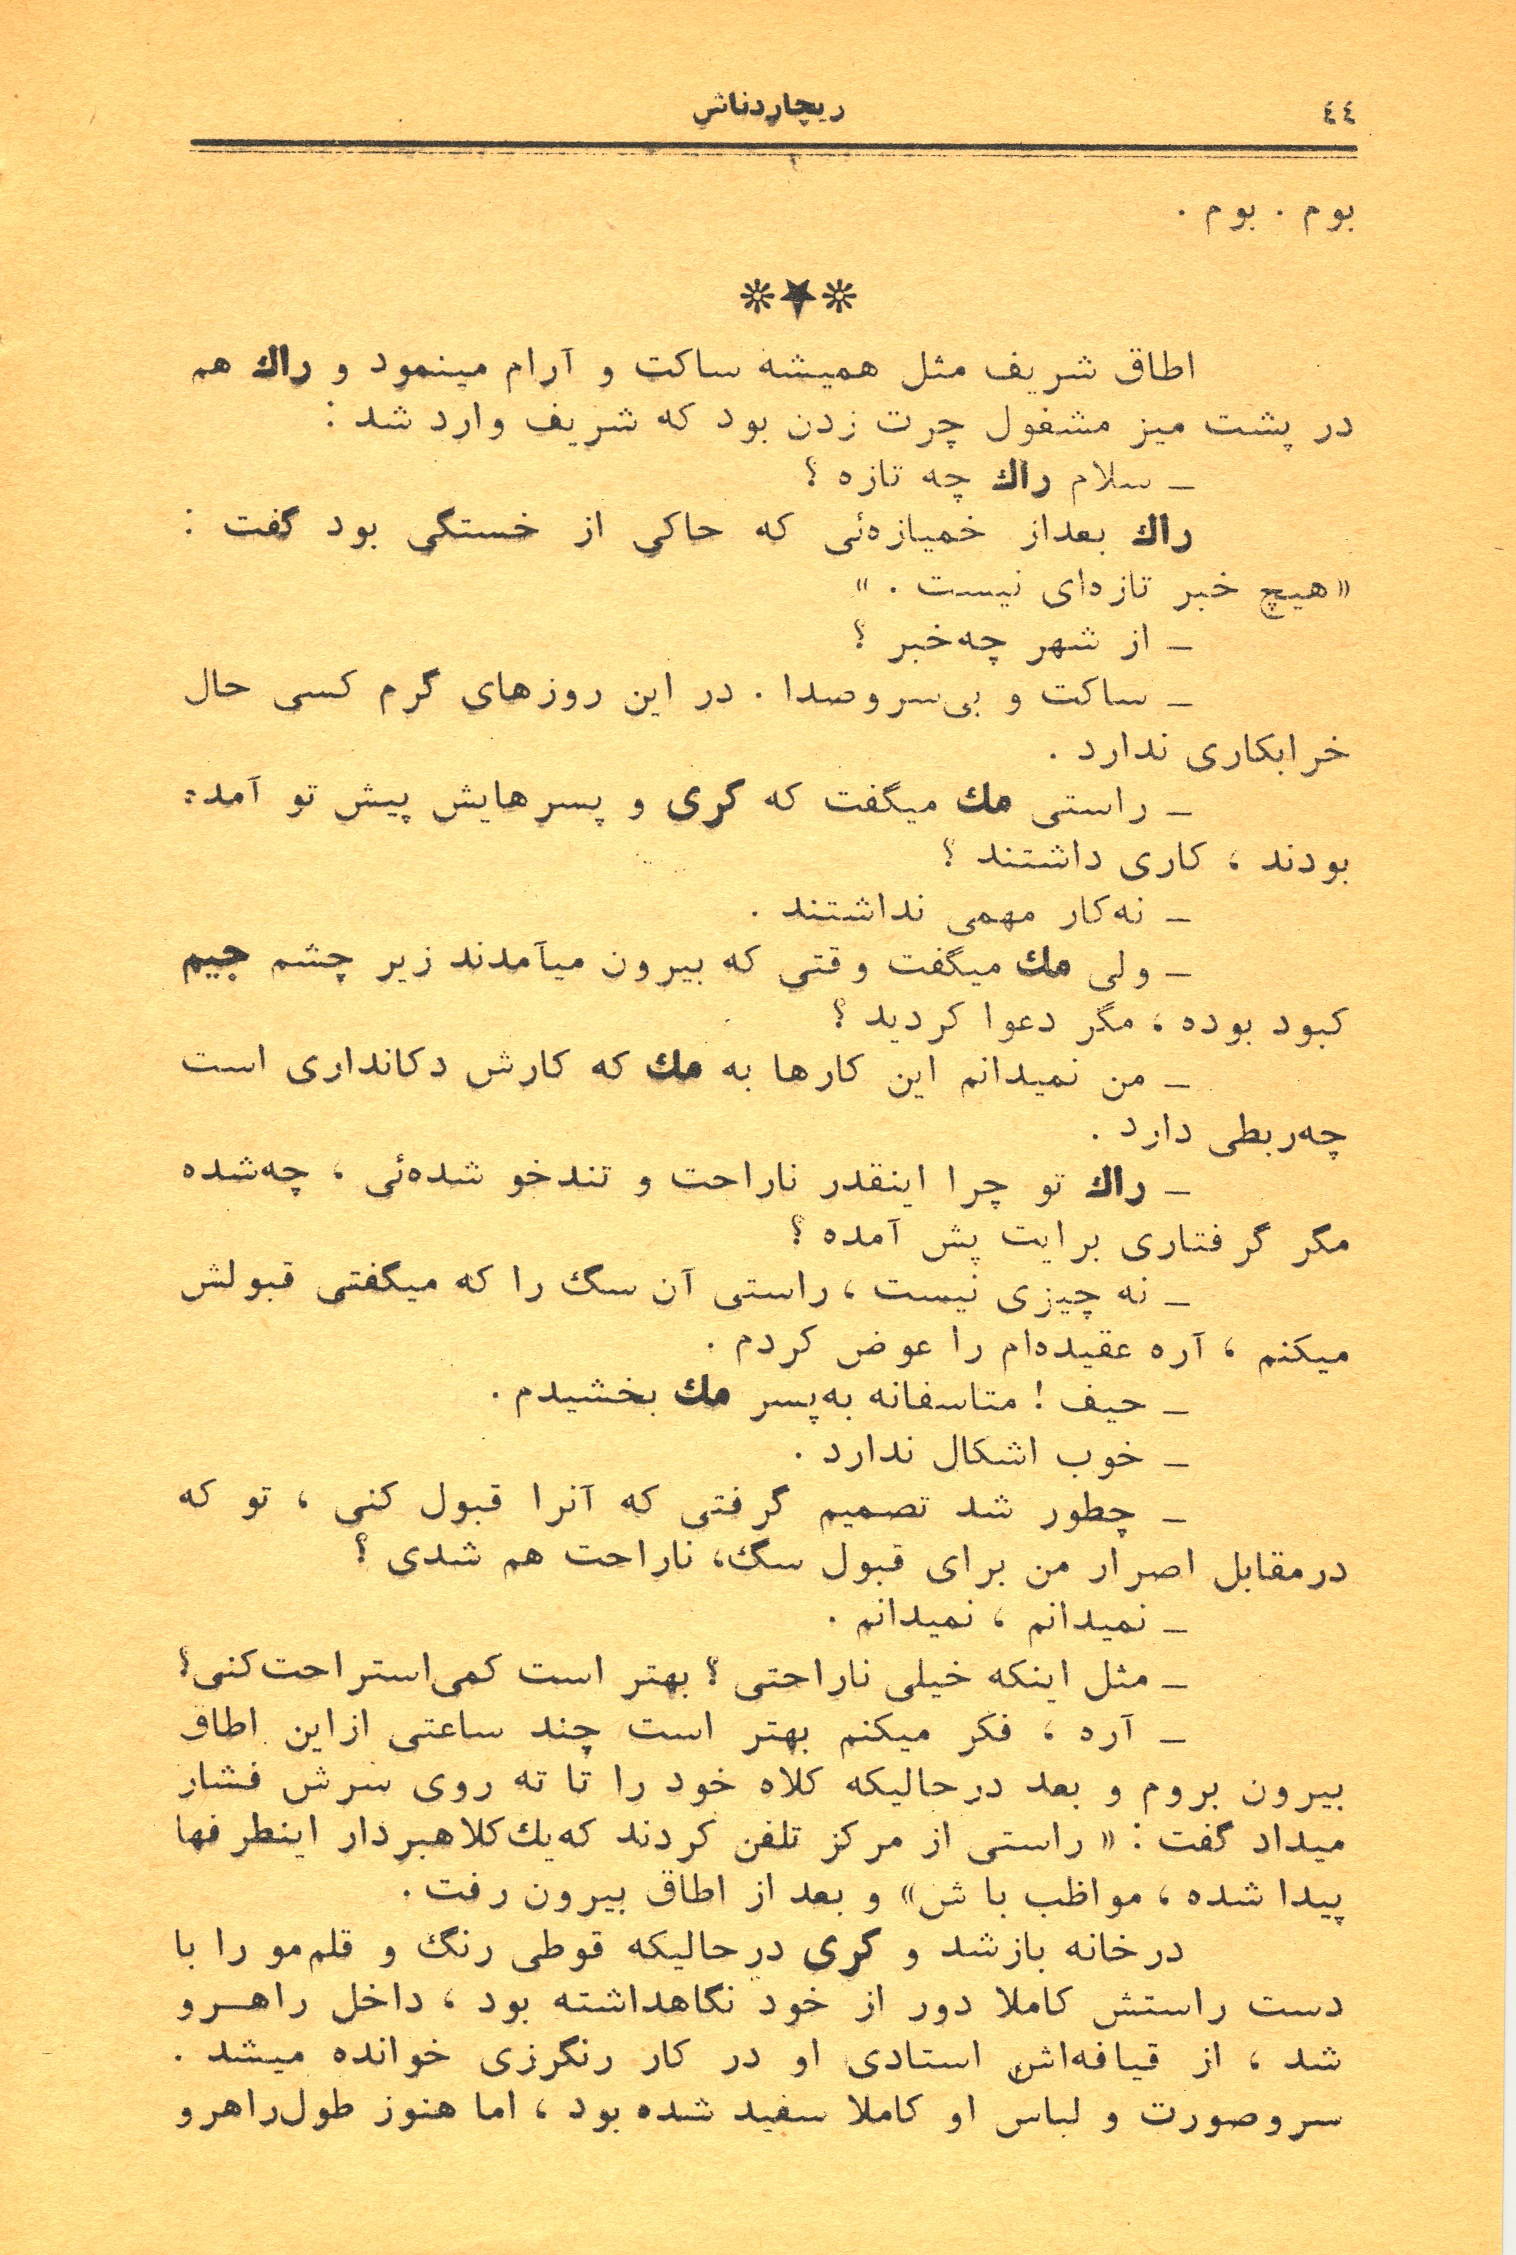 ٤٤
ریچاردناش
بوم . بوم .
اطاق شریف مثل همیشه ساکت و آرام مینمود و راك هم
در پشت میز مشغول چرت زدن بود که شریف وارد شد :
ـ سلام راك چه تازه ؟
راك بعداز خمیازه‌ئی که حاکی از خستگی بود گفت :
«هیچ خبر تازه‌ای نیست . »
ـ از شهر چه‌خبر ؟
ـ ساکت و بی‌سروصدا . در این روزهای گرم کسی حال
خرابکاری ندارد .
ـ راستی مك میگفت که گری و پسرهایش پیش تو آمده
بودند ، کاری داشتند ؟
ـ نه‌کار مهمی نداشتند .
ـ ولی مك میگفت وقتی که بیرون میآمدند زیر چشم جیم
کبود بوده ، مگر دعوا کردید ؟
ـ من نمیدانم این کارها به مك که کارش دکانداری است
چه‌ربطی دارد .
ـ راك تو چرا اینقدر ناراحت و تندخو شده‌ئی ، چه‌شده
مگر گرفتاری برایت پش آمده ؟
ـ نه چیزی نیست ، راستی آن سگ را که میگفتی قبولش
میکنم ، آره عقیده‌ام را عوض کردم .
ـ حیف ! متاسفانه به‌پسر مك بخشیدم .
ـ خوب اشکال ندارد .
ـ چطور شد تصمیم گرفتی که آنرا قبول کنی ، تو که
درمقابل اصرار من برای قبول سگ، ناراحت هم شدی ؟
ـ نمیدانم ، نمیدانم .
ـ مثل اینکه خیلی ناراحتی ؟ بهتر است کمی‌استراحت‌کنی؟
ـ آره ، فکر میکنم بهتر است چند ساعتی ازاین اطاق
بیرون بروم و بعد درحالیکه کلاه خود را تا ته روی سرش فشار
میداد گفت : « راستی از مرکز تلفن کردند که‌یك‌کلاهبردار اینطرفها
پیدا شده ، مواظب باش» و بعد از اطاق بیرون رفت .
درخانه بازشد و گری درحالیکه قوطی رنگ و قلم‌مو را با
دست راستش کاملا دور از خود نگاهداشته بود ، داخل راهـرو
شد ، از قیافه‌اش استادی او در کار رنگرزی خوانده میشد .
سروصورت و لباس او کاملا سفید شده بود ، اما هنوز طول‌راهرو